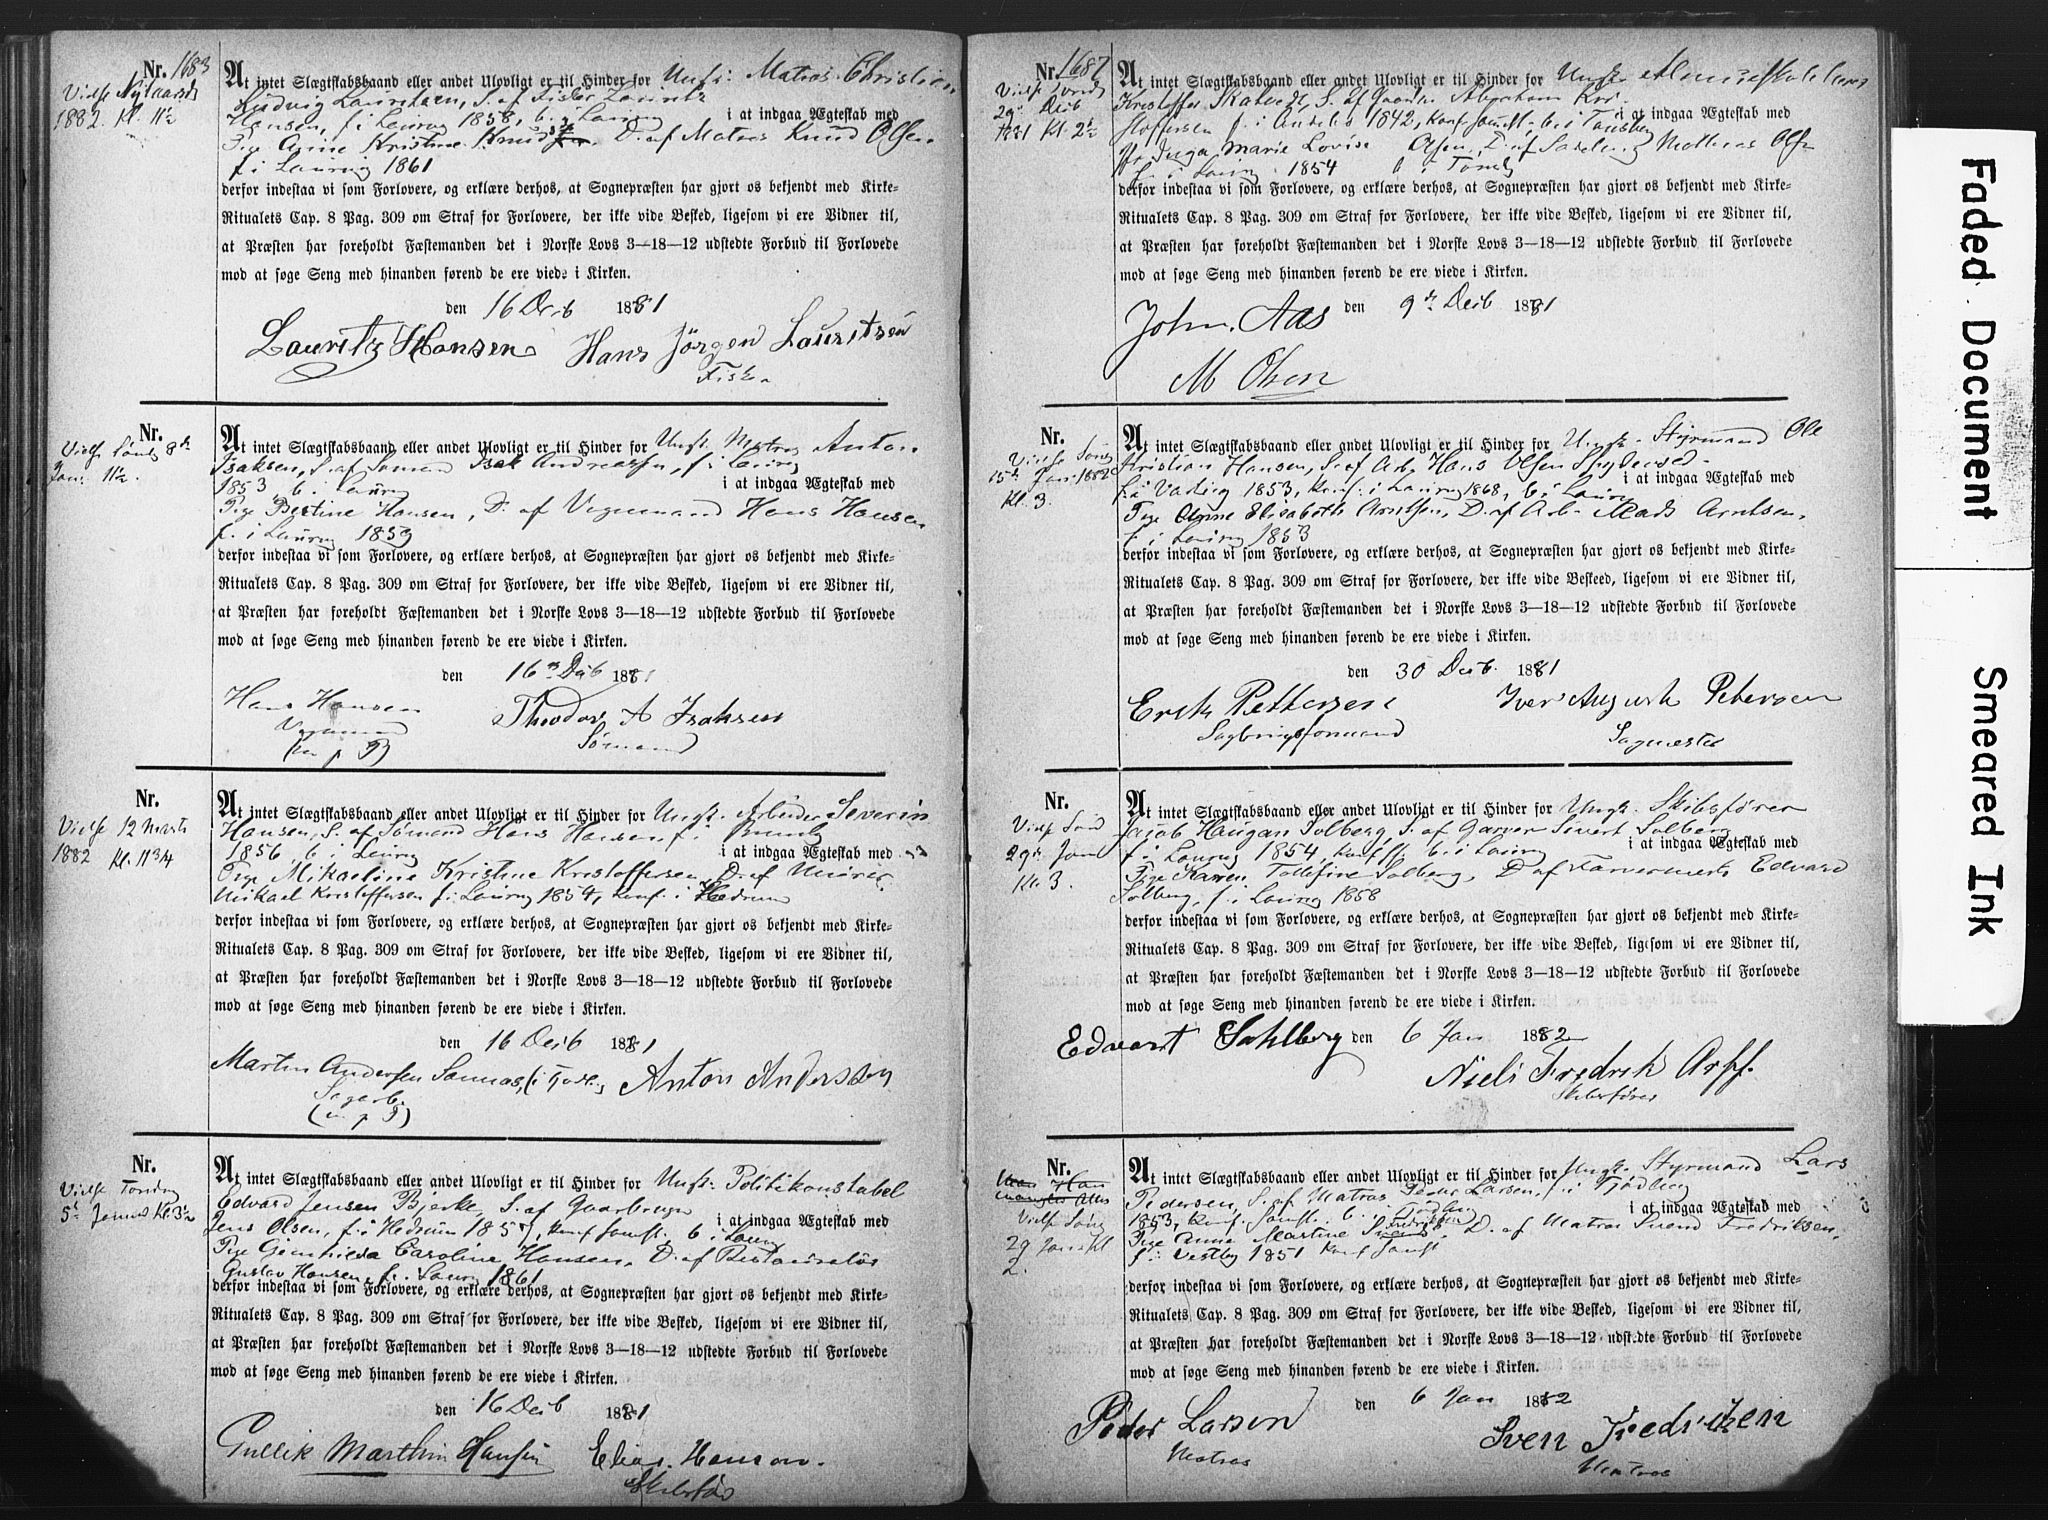 Nr. 1683
Vielse Nytaarsd
1882. Kl. 11½
At intet Slægtskabsbaand eller andet Ulovligt er til Hinder for Ungk. Matros Christian
Ludvig Lauritsen, S. af Fisker Lauritz
Hansen, f. i Laurvig 1858, b. i Laurvig i at indgaa Ægteskab med
Pige Anne Kristine Knuds D. af Matros Knud Olsen
f. i Laurvig 1861
derfor indestaa vi som Forlovere, og erklære derhos, at Sognepræsten har gjort os bekjendt med Kirke-
Ritualets Cap. 8 Pag. 309 om Straf for Forlovere, der ikke vide Besked, ligesom vi ere Vidner til,
at Præsten har foreholdt Fæstemanden det i Norske Lovs 3—18—12 udstedte Forbud til Forlovede
mod at søge Seng med hinanden førend de ere viede i Kirken.
den 16 Decb 1881
Lauritz Hansen Hans Jörgen Lauritsen
Fisker
Nr.
Vielse Sønd 8de
Jan. 11½.
At intet Slægtskabsbaand eller andet Ulovligt er til Hinder for Ungk. Matros Anton
Isaksen, S. af Sømand Isak Andreassen, f. i Laurvig
1853, b. i Laurvig i at indgaa Ægteskab med
Pige Bertine Hansen, D. af Vognmand Hans Hansen
f. i Laurvig 1859
derfor indestaa vi som Forlovere, og erklære derhos, at Sognepræsten har gjort os bekjendt med Kirke-
Ritualets Cap. 8 Pag. 309 om Straf for Forlovere, der ikke vide Besked, ligesom vi ere Vidner til,
at Præsten har foreholdt Fæstemanden det i Norske Lovs 3—18—12 udstedte Forbud til Forlovede
mod at søge Seng med hinanden førend de ere viede i Kirken.
den 16 Decb 1881
Hans Hansen Theodor A Isaksen
Vognmand Sømand
(m. p. P)
Nr.
Vielse 12 Marts
1882 Kl. 11 3/4
At intet Slægtskabsbaand eller andet Ulovligt er til Hinder for Ungk. Arbeider Severin
Hansen, S. af Sømand Hans Hansen, f. i
1856, b. i Laurvig i at indgaa Ægteskab med
Pige Mikaeline Kristine Kristoffersen, D. af Murer
Mikael Kristoffersen f. i Laurvig 1854, konf. i Hedrum
derfor indestaa vi som Forlovere, og erklære derhos, at Sognepræsten har gjort os bekjendt med Kirke-
Ritualets Cap. 8 Pag. 309 om Straf for Forlovere, der ikke vide Besked, ligesom vi ere Vidner til,
at Præsten har foreholdt Fæstemanden det i Norske Lovs 3—18—12 udstedte Forbud til Forlovede
mod at søge Seng med hinanden førend de ere viede i Kirken.
den 16 Decb 1881
Martin Andersen Anton Anderssen
Sagarb.
(m. p. P)
Nr.
Vielse Torsdag
5te Januar Kl. 3½
At intet Slægtskabsbaand eller andet Ulovligt er til Hinder for Ungk. Politikonstabel
Edvard Jensen Bjerke, S. af Gaardbruger
Jens Olsen, f. i Hedrum 1857, konf. samst. b. i Laurvig i at indgaa Ægteskab med
Pige Caroline Hansen, D. af Restauratør
Gustav Hansen, f. i Laurvig 1861
derfor indestaa vi som Forlovere, og erklære derhos, at Sognepræsten har gjort os bekjendt med Kirke-
Ritualets Cap. 8 Pag. 309 om Straf for Forlovere, der ikke vide Besked, ligesom vi ere Vidner til,
at Præsten har foreholdt Fæstemanden det i Norske Lovs 3—18—12 udstedte Forbud til Forlovede
mod at søge Seng med hinanden førend de ere viede i Kirken.
den 16 Decb 1881
Gullik Marthin Hansen Elias Hanson.
Nr. 1687
Vielse
29de Decb
1881 Kl. 2½
At intet Slægtskabsbaand eller andet Ulovligt er til Hinder for Ungk.
Kristoffer Skatvedt, S. af Gaardm Abraham Kri-
stoffersen f. i 1842, konf. samst. b. i Tønsberg i at indgaa Ægteskab med
Inga Marie Lovise Olsen, D. af Mathias Olsen
f. i Laurvig 1854
derfor indestaa vi som Forlovere, og erklære derhos, at Sognepræsten har gjort os bekjendt med Kirke-
Ritualets Cap. 8 Pag. 309 om Straf for Forlovere, der ikke vide Besked, ligesom vi ere Vidner til,
at Præsten har foreholdt Fæstemanden det i Norske Lovs 3—18—12 udstedte Forbud til Forlovede
mod at søge Seng med hinanden førend de ere viede i Kirken.
John. Aas den 9de Decb 1881
M Olsen
Nr.
Vielse Sønd
15de Jan. 1882
Kl. 3.
At intet Slægtskabsbaand eller andet Ulovligt er til Hinder for Ungk. Styrmand Ole
Kristian Hansen, S. af Arb. Hans Olsen
f. i 1853, konf. i Laurvig 1868, b. i Laurvig i at indgaa Ægteskab med
Pige Anne Elisabeth Arntsen, D. af Arb. Mads Arntsen,
f. i Laurvig 1853
derfor indestaa vi som Forlovere, og erklære derhos, at Sognepræsten har gjort os bekjendt med Kirke-
Ritualets Cap. 8 Pag. 309 om Straf for Forlovere, der ikke vide Beskeed, ligesom vi ere Vidner til,
at Præsten har foreholdt Fæstemanden det i Norske Lovs 3—18—12 udstedte Forbud til Forlovede
mod at søge Seng med hinanden førend de ere viede i Kirken.
den 30 Decb. 1881
Erik Pettersen Iver August Petersen
Sagbrugsformand Sagmester
Nr.
Vielse Sønd
29de Jan
Kl. 3.
At intet Slægtskabsbaand eller andet Ulovligt er til Hinder for Ungk. Skibsfører
Jacob Haugan Solberg, S. af Garver Sivert Solberg
f. i Laurvig 1854, konf. b. i Laurvig i at indgaa Ægteskab med
Pige Karen Tollefine Solberg, D. af Edvard
Solberg, f. i Laurvig 1858
derfor indestaa vi som Forlovere, og erklære derhos, at Sognepræsten har gjort os bekjendt med Kirke-
Ritualets Cap. 8 Pag. 309 om Straf for Forlovere, der ikke vide Besked, ligesom vi ere Vidner til,
at Præsten har foreholdt Fæstemanden det i Norske Lovs 3—18—12 udstedte Forbud til Forlovede
mod at søge Seng med hinanden førend de ere viede i Kirken.
Edvardt Sahlberg den 6 Jan 1882
Niels Fredrik Arff.
Skibsfører
Nr.
Vielse Sønd
29 Jan Kl
2.
At intet Slægtskabsbaand eller andet Ulovligt er til Hinder for Ungk. Styrmand Lars
Pedersen, S. af Matros Peder Larsen, f. i Tjødling
1853, konf. samst. b. i Tjødling i at indgaa Ægteskab med
Pige Anne Martine Fredriksen D. af Matros Svend Fredriksen,
f. i Vestby 1851 konf samst
derfor indestaa vi som Forlovere, og erklære derhos, at Sognepræsten har gjort os bekjendt med Kirke-
Ritualets Cap. 8 Pag. 309 om Straf for Forlovere, der ikke vide Besked, ligesom vi ere Vidner til,
at Præsten har foreholdt Fæstemanden det i Norske Lovs 3—18—12 udstedte Forbud til Forlovede
mod at søge Seng med hinanden førend de ere viede i Kirken.
den 6 Jan 1882
Peder Larsen Sven Fredriksen
Matros Matros
Faded Document
Smeared Ink